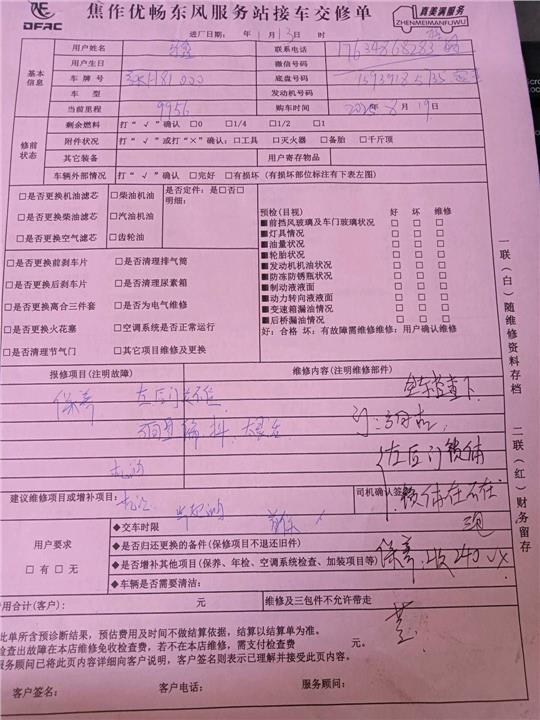 DFAC
焦作优畅东风服务站接车交修单
真美满服务
ZHENMEIMANFUWU
进厂日期： 年 1月13日 时
基本信息
用户姓名 联系电话 17634868283
用户生日 微信号码
车牌号 底盘号码
车 型 发动机号码
当前里程 9956 购车时间 年 月19日
修前状态
剩余燃料 打“√”确认 □0 □1/4 □1/2 □1
附件状况 打“√”或打“×”确认：□工具 □灭火器 □备胎 □千斤顶
其它装备 用户寄存物品
车辆外部情况 打“√”确认 □完好 □有损坏（有损坏部位标注有下表左图）
□是否更换机油滤芯 □柴油机油 是否定件：是□否□
明细：
□是否更换柴油滤芯 □汽油机油
□是否更换空气滤芯 □齿轮油
预检(目视) 好 坏 维修
■前挡风玻璃及车门玻璃状况 □ □ □
■灯具情况 □ □ □
■油量状况 □ □ □
■轮胎状况 □ □ □
■发动机机油状况 □ □ □
■防冻防锈瓶状况 □ □ □
■制动液液面 □ □ □
■动力转向液液面 □ □ □
■变速箱漏油情况 □ □ □
■后桥漏油情况 □ □ □
好：合格 坏：有故障需维修维修：用户确认维修
□是否更换前刹车片 □是否清理排气筒
□是否更换后刹车片 □是否清理尿素箱
□是否更换离合三件套 □是否为电气维修
□是否更换火花塞 □空调系统是否正常运行
□是否清理节气门 □其它项目维修及更换
报修项目(注明故障) 维修内容(注明维修部件)
保养 左后门
全车检查下
左后门锁偏
机油
建议维修项目或增补项目： 司机确认签
用户要求
□有 □无
◆交车时限
◆是否归还更换的备件(保修项目不退还旧件)
◆是否增补其他项目(保养、年检、空调系统检查、加装项目等)
◆车辆是否需要清洁：
保养：收240
费用合计(客户)： 元 维修及三包件不允许带走
此单所含预诊断结果，预估费用及时间不做结算依据，结算以结算单为准。
检查出故障在本店维修免收检查费，若不在本店维修，需支付检查费 元。
服务顾问已将此页内容详细向客户说明，客户签名则表示已理解并接受此页内容。
客户签名： 客户电话： 服务顾问：
一联（白）随维修资料存档
二联（红）财务留存